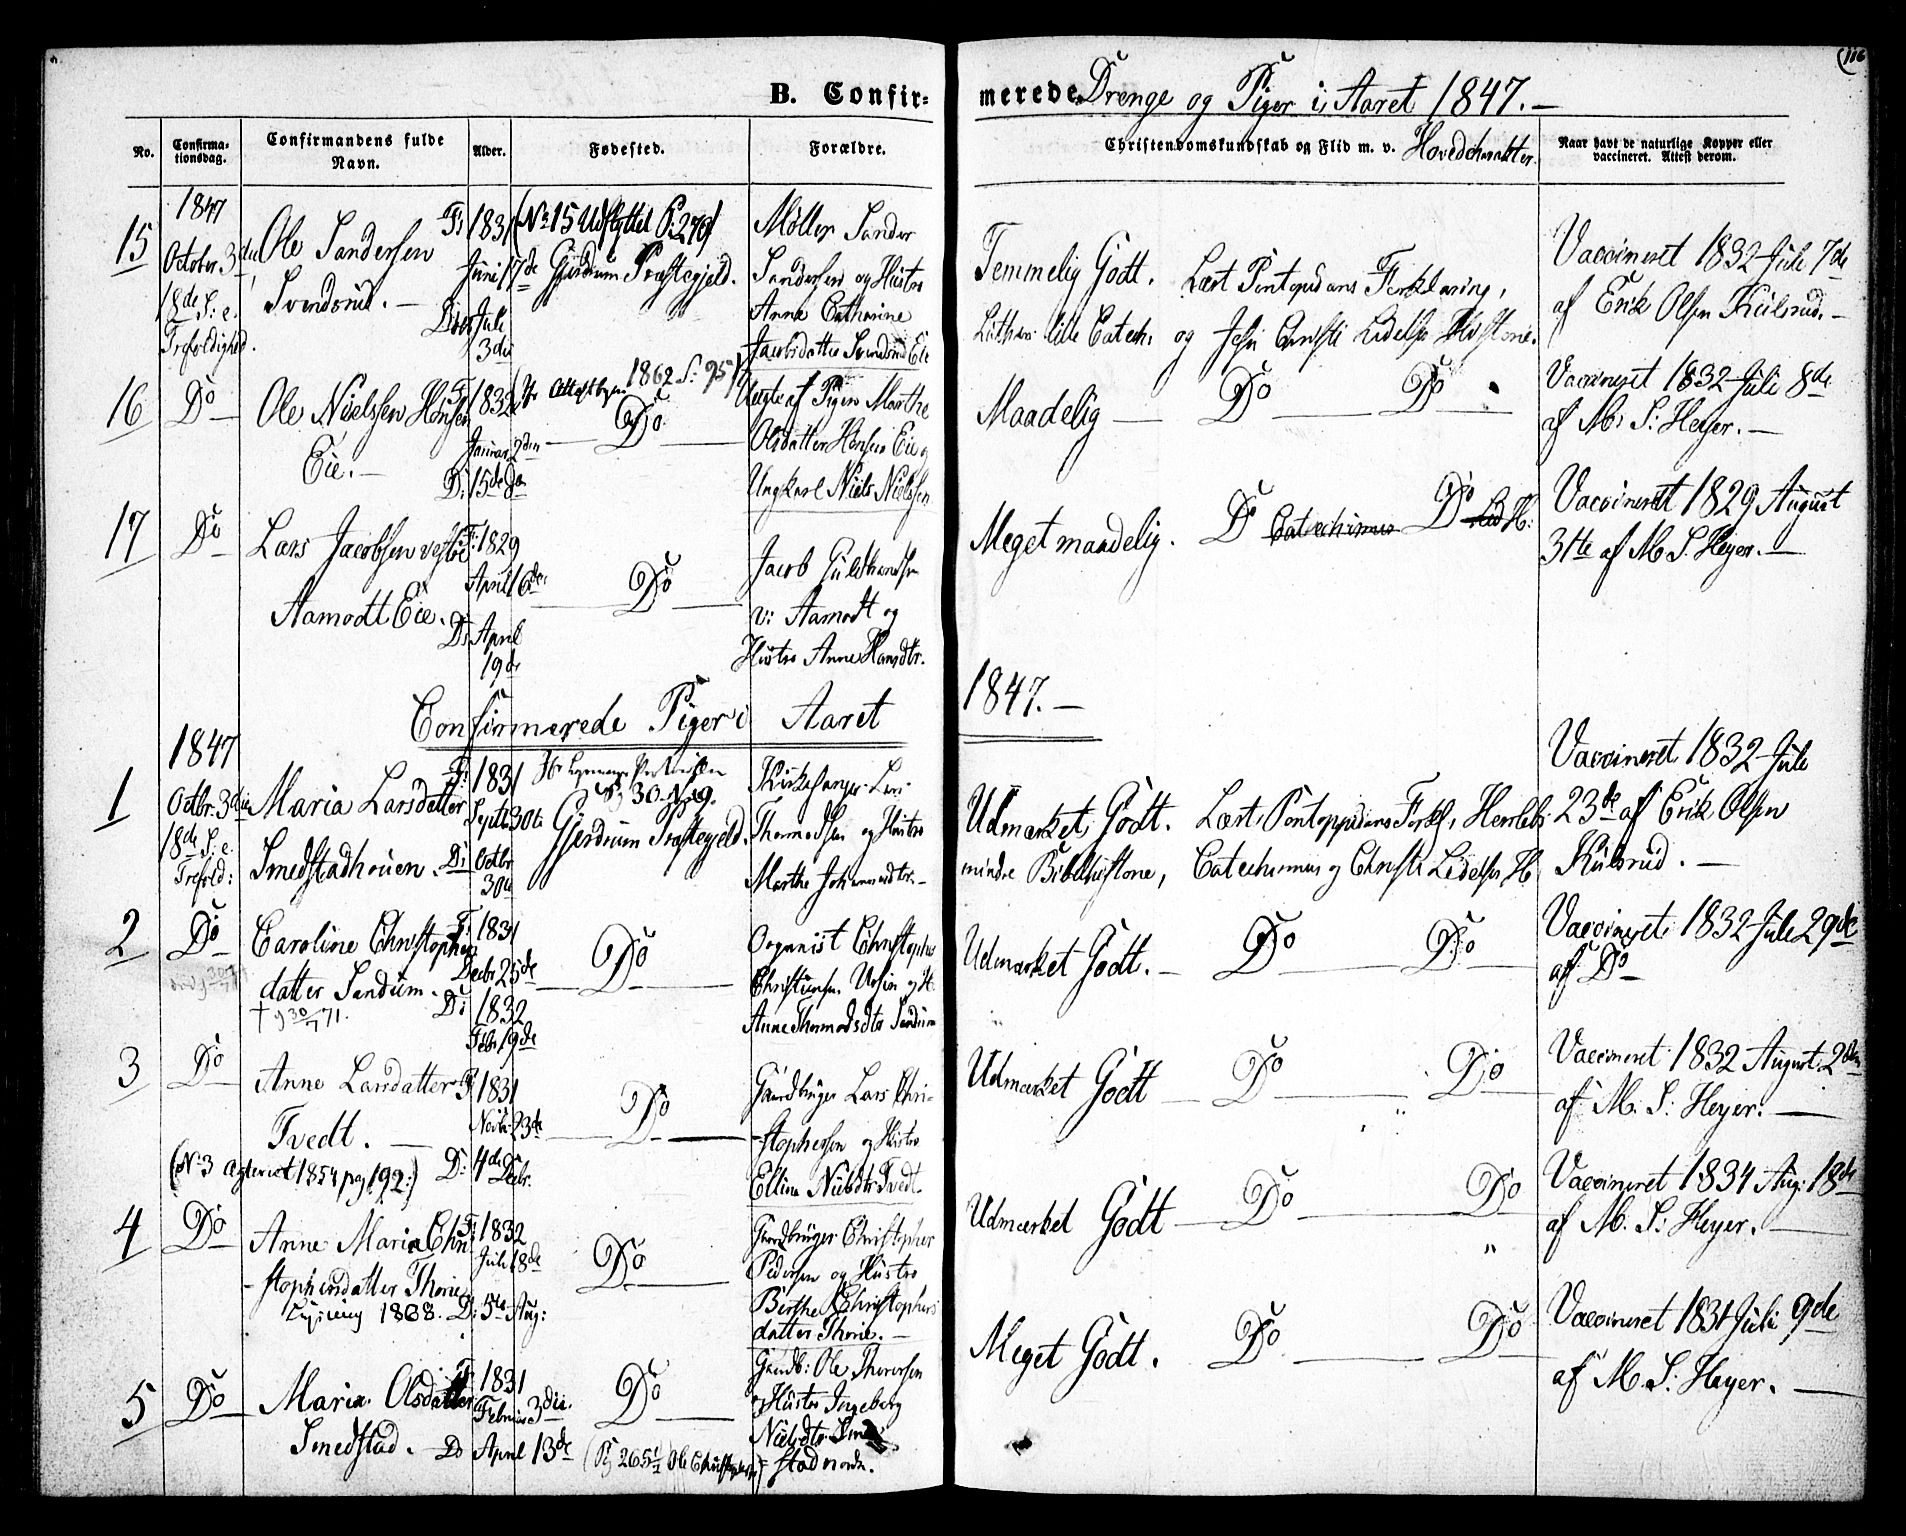 116
B. Confirmerede Drenge og Piger i Aaret 1847.
No.
Confirmationsdag.
Confirmandens fulde Navn.
Alder.
Fødested.
Forældre.
Christendomskundskab og Flid m. v. Hovedcharakter.
Naar havt de naturlige Kopper eller vaccineret. Attest derom.
15
1847
October 3die
18de S: e.
Trefoldighed.
Ole Sandersen
Svendsrud.
F: 1831
Juni 17de
Døbt Juli
3die
(No 15 Udflyttet P: 270)
Gjerdrum Præstegjeld.
Møller Sander
Sandersen og Hustro
Anne Cathrine
Jacobsdatter Svendsrud Eie
Temmelig Godt. Læst Pontopidans Forklaring,
Luthers lille Catech: og Jesu Christi Lidelses Historie.
Vaccineret 1832 Juli 7de
af Erik Olsen Kulsrud.
16
Do
Ole Nielsen Hønsen
Eie.
F: 1832
Januar 2den
D: 15de Do
1862 S: 95
Do
Uægte af Pigen Marthe
Olsdatter Hønsen Eie og
Ungkarl Niels Nielsen
Maadelig Do Do
Vaccineret 1832 Juli 8de
af M: S: Heyer.
17
Do
Lars Jacobsen
Aamodt Eie.
F: 1829
April 6de
D: April
19de
Do
Jacob Guldbrandsen
v: Aamodt og
Hustro Anne Hansdtr.
Meget maadelig. Do Catechismus Do Lid H:
Vaccineret 1829 August
31te af M. S. Heyer.
Confirmerede Piger i Aaret 1847.
1
1847
Octbr. 3die
18de S: e.
Trefold:
Maria Larsdatter
Smedstadhouen.
F: 1831
Septb. 30te
D: Octbr
30te
30 No 19.
Gjerdrum Præstegjeld.
Kirkesanger Lars
Thormodsen og Hustro
Marthe Johannesdtr.
Udmærket Godt. Læst Pontoppidans Forkl, Herslebs
mindre Bibelhistorie, Catechismus og Christi Lidelses H:
Vaccineret 1832 Juli
23de af Erik Olsen
Kulsrud.
2
Do
Caroline Christophers
datter Sandum.
† 30/7 71.
F: 1831
Decbr 25de
D: 1832
Febr. 19de
Do
Organist Christopher
Christiansen og H:
Anne Thormodsdtr Sandum
Udmærket Godt. Do Do
Vaccineret 1832 Juli 29de
af Do
3
Do
Anne Larsdatter
Tvedt.
(No 3 1854 pag 192.)
F: 1831
Novbr. 23de
D: 4de Decbr.
Do
Gaardbruger Lars Chri-
stophersen og Hustro
Elline Nielsdtr Tvedt.
Udmærket Godt Do Do
Vaccineret 1832 August 2den
af M. S: Heyer.
4
Do
Anne Maria Chri
stophersdatter Thorie
1868.
F: 1832
Juli 18de
D: 5te Aug:
Do
Gaardbruger Christopher
Pedersen og Hustro
Birthe Christophers
datter Thorie.
Udmærket Godt Do Do
Vaccineret 1834 Aug: 18de
af M. S: Heyer.
5
Do
Maria Olsdatter
Smedstad.
F: 1831
Februar 3die.
Do April 13de
Do
(Pg 265 Ole Christophersen)
Gaardb: Ole Thoresen
og Hustro Ingeborg
Nielsdtr Smed
stad nordre.
Meget Godt. Do Do
Vaccineret 1831 Juli 9de
af M. S: Heyer.